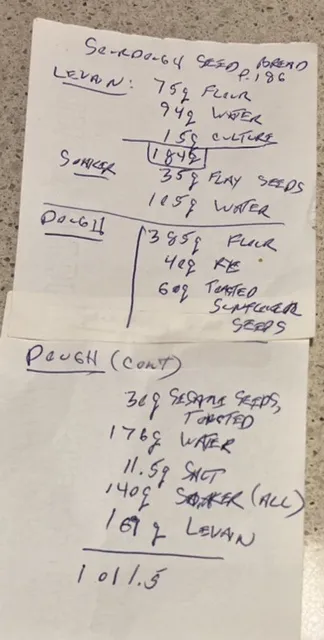 SOURDOUGH SEED BREAD
P. 186
LEVAIN: 75g FLOUR
94g WATER
15g CULTURE
184g
SOAKER 35g FLAX SEEDS
105g WATER
DOUGH 385g FLOUR
40g RYE
60g TOASTED
SUNFLOWER
SEEDS
DOUGH (CONT)
30g SESAME SEEDS,
TOASTED
176g WATER
11.5g SALT
140g SOAKER (ALL)
169g LEVAIN
1011.5